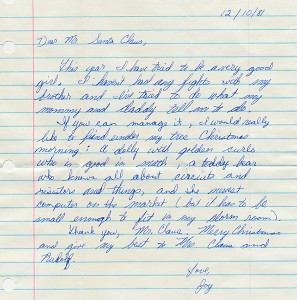 12/10/81
Dear Mr. Santa Claus,
This year, I have tried to be a very good
girl. I haven't had any fights with my
brother and I've tried to do what my
mommy and daddy tell me to do.
If you can manage it, I would really
like to find under my tree Christmas
morning: A dolly with golden curls
who is good in math, a teddy bear
who knows all about circuits and
resistors and things, and the newest
computer on the market (but it has to be
small enough to fit in my dorm room).
Thank you, Mr. Claus. Merry Christmas
and give my best to Mrs. Claus and
Rudolf.
Love,
Joy